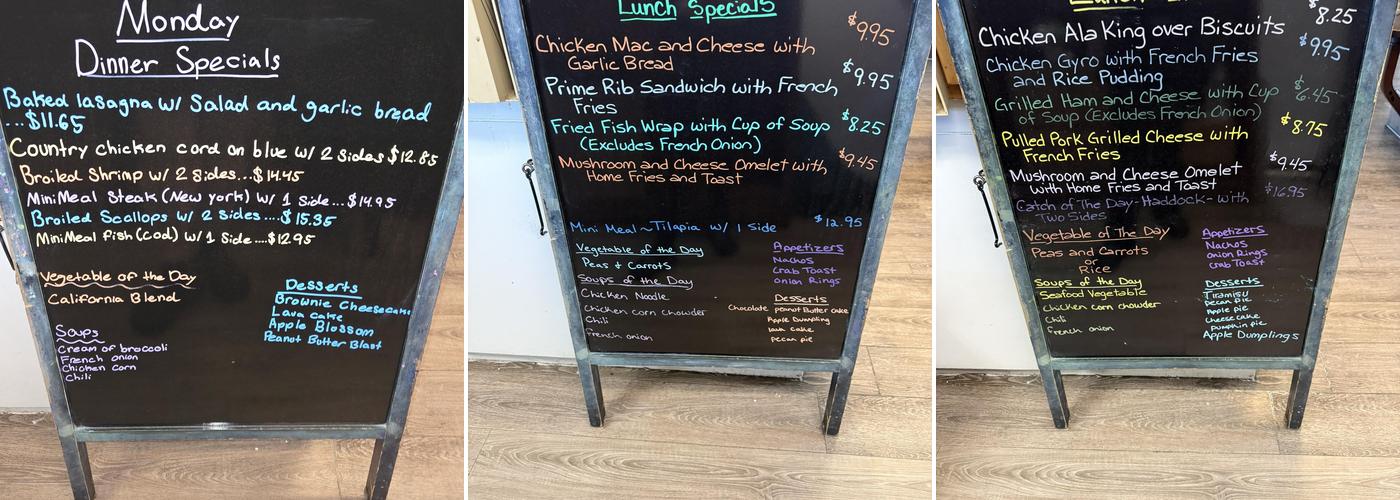 Monday
Dinner Specials
Baked lasagna w/ Salad and garlic bread
...$11.65
Country chicken cord on blue w/ 2 sides $12.85
Broiled Shrimp w/ 2 sides...$14.45
MiniMeal Steak (New york) w/ 1 Side...$14.95
Broiled Scallops w/ 2 sides....$15.35
MiniMeal fish (cod) w/ 1 Side....$12.95
Vegetable of the Day
California Blend
Desserts
Brownie Cheesecake
Lava cake
Apple Blossom
Peanut Butter Blast
Soups
Cream of broccoli
French onion
Chicken corn
Chili
Lunch Specials
Chicken Mac and Cheese with $9.95
Garlic Bread
Prime Rib Sandwich with French $9.95
Fries
Fried Fish Wrap with Cup of Soup $8.25
(Excludes French Onion)
Mushroom and Cheese Omelet with $9.45
Home Fries and Toast
Mini Meal ~ Tilapia w/ 1 Side $12.95
Vegetable of the Day
Peas & Carrots
Soups of the Day
Chicken Noodle
Chicken corn chowder
Chili
french onion
Appetizers
Nachos
Crab Toast
onion Rings
Desserts
Chocolate peanut Butter cake
Apple Dumpling
lava cake
pecan pie
Chicken Ala King over Biscuits $8.25
Chicken Gyro with French Fries $9.95
and Rice Pudding
Grilled Ham and Cheese with Cup $6.45
of Soup (Excludes French Onion)
Pulled Pork Grilled Cheese with $8.75
French Fries
Mushroom and Cheese Omelet $9.45
with Home Fries and Toast
Catch of The Day - Haddock - with $16.95
Two Sides
Vegetable of The Day
Peas and Carrots
or
Rice
Soups of the Day
Seafood Vegetable
Chicken corn chowder
Chili
french onion
Appetizers
Nachos
onion Rings
crab Toast
Desserts
Tiramisu
pecan pie
Apple pie
cheesecake
pumpkin pie
Apple Dumplings